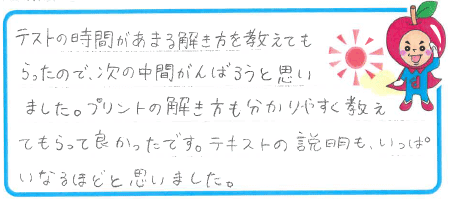 テストの時間があまる解き方を教えても
らったので、次の中間がんばろうと思い
ました。プリントの解き方も分かりやすく教え
てもらって良かったです。テキストの説明も、いっぱ
いなるほどと思いました。